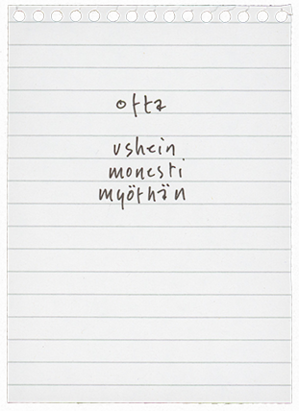 ofta
ushein
monesti
myöthän